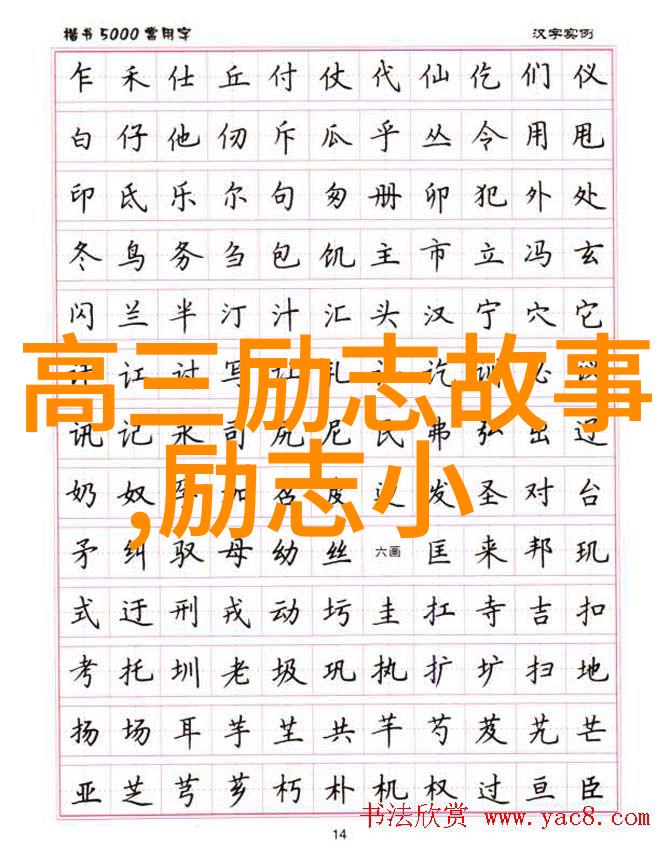 楷书5000常用字 汉字实例
乍 禾 仕 丘 付 仗 代 仙 仡 们 仪
白 仔 他 仞 斥 瓜 乎 丛 令 用 甩
印 氐 乐 尔 句 匆 册 卯 犯 外 处
冬 鸟 务 刍 包 饥 主 市 立 冯 玄
闪 兰 半 汀 汁 汇 头 汉 宁 穴 它
讨 写
高三励志故事
讯 记 永 司 尻 尼 民 弗 弘 出 辽
奶 奴 加 召 皮 边 发 圣 对 台
,励志小
矛 纠 驭 母 幼 丝 六画 匡 来 邦 玑
式 迂 刑 戎 动 圬 圭 扛 寺 吉 扣
考 托 圳 老 圾 巩 执 扩 圹 扫 地
扬 场 耳 芋 芏 共 芊 芍 芨 芄 芒
亚 芝 芎 芗 朽 朴 机 权 过 亘 臣
书法欣赏 www.yac8.com
14